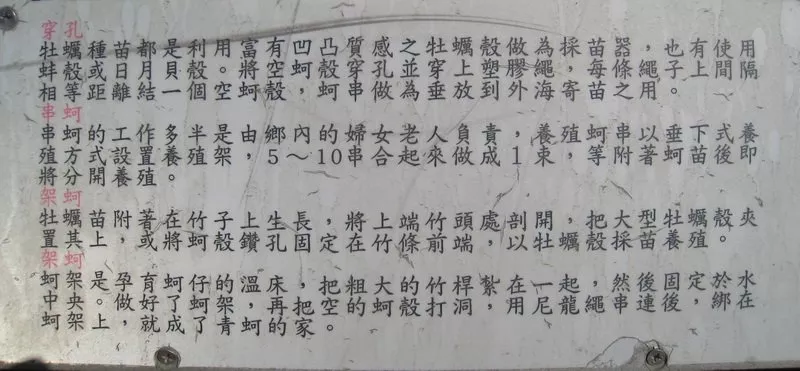 穿孔
牡蠣種苗都是利用富有凹凸質感之牡蠣殼做為採苗器，也有使用
蚌殼或日月貝殼。將空蚵殼穿孔並穿上塑膠繩，每條繩子上間隔
相等距離結一個空蚵殼，串做為垂放到外海寄苗之用。
串蚵
串蚵的工作多半是由鄉內的婦女老人負責，養殖蚵串以垂下式養
殖方式設置養殖架，5～10串合起來做成1束，等附著蚵苗後即
將分開養殖。
架蚵
牡蠣苗附著在竹子上生長，將上端竹頭處，剖開，把大型牡蠣殼夾
置其上，或將蚵殼鑽孔固定在竹條前端，以牡蠣殼採苗養殖。
架蚵
蚵架是孕育蚵仔的溫床，把粗大的竹桿紮在一起，然後固定於水
中央。做好了蚵架，再把空的蚵殼打洞，用尼龍繩串連後，綁在
蚵架上，就成了青蚵的家。